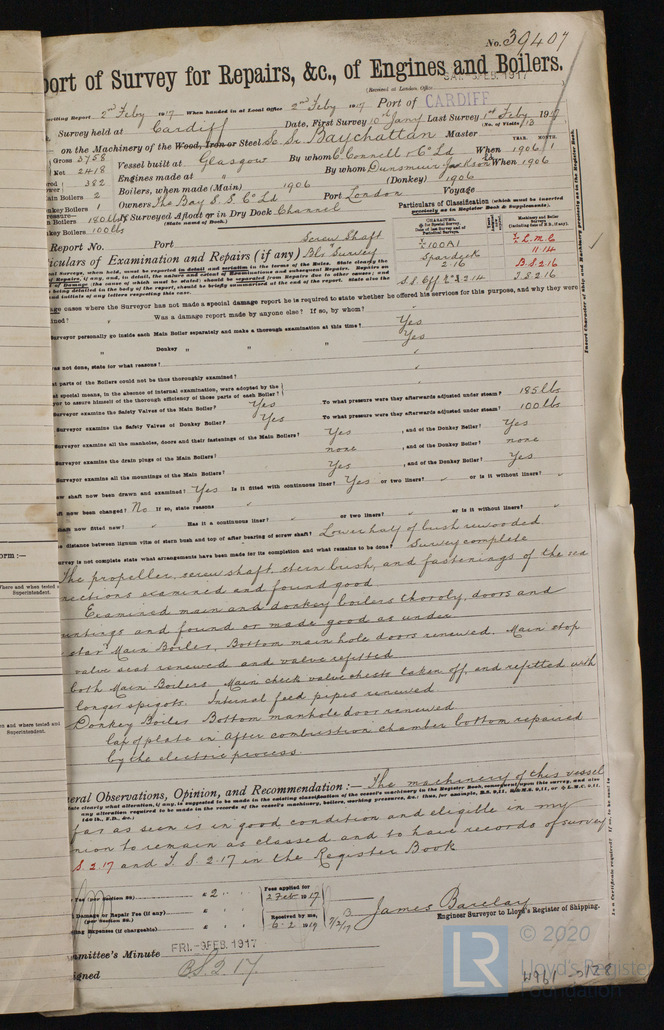 No. 39407
port of Survey for Repairs, &c., of Engines and Boilers.
(Received at London Office SAT. 3 FEB. 1917
writing Report 2nd Feby 1917 When handed in at Local Office 2nd Feby 1917 Port of CARDIFF
Survey held at Cardiff Date, First Survey 10th Jany Last Survey 1st Feby 1917
(No. of Visits 13)
on the Machinery of the Wood, Iron or Steel Sc Sr Baychattan Master
Gross 3758 Vessel built at Glasgow By whom C. Connell & Co Ld When 1906 1
YEAR. MONTH.
Net 2418 Engines made at " By whom Dunsmuir & Jackson Ld When 1906
382 Boilers, when made (Main) 1906 (Donkey) 1906
ain Boilers 2 Owners The Bay S. S. Co Ld Port London Voyage
nkey Boilers 1
180 lbs If Surveyed Afloat or in Dry Dock Channel
(State name of Dock.)
key Boilers 100 lbs
Particulars of Classification (which must be inserted precisely as in Register Book & Supplements).
Report No. Port
Screw Shaft
iculars of Examination and Repairs (if any) Blr Survey
100A1
Spardeck
2.16
S.S. Cff No 1 2.14
L.M.C.
11.14
B.S 2.16
T.S 2.16
age cases where the Surveyor has not made a special damage report he is required to state whether he offered his services for this purpose, and why they were
ined? " Was a damage report made by anyone else? If so, by whom?
Surveyor personally go inside each Main Boiler separately and make a thorough examination at this time? Yes
" Donkey " " " Yes
as not done, state for what reasons?
t parts of the Boilers could not be thus thoroughly examined?
t special means, in the absence of internal examination, were adopted by the
yor to assure himself of the thorough efficiency of those parts of each Boiler?
urveyor examine the Safety Valves of the Main Boiler? Yes To what pressure were they afterwards adjusted under steam? 185 lbs
urveyor examine the Safety Valves of Donkey Boiler? Yes To what pressure were they afterwards adjusted under steam? 100 lbs
urveyor examine all the manholes, doors and their fastenings of the Main Boilers? Yes , and of the Donkey Boiler? Yes
urveyor examine the drain plugs of the Main Boilers? none , and of the Donkey Boiler? none
urveyor examine all the mountings of the Main Boilers? Yes , and of the Donkey Boiler? Yes
ew shaft now been drawn and examined? Yes Is it fitted with continuous liner? Yes or two liners? " or is it without liners? "
aft now been changed? No If so, state reasons
haft now fitted new? " Has it a continuous liner? " or two liners? " or is it without liners? "
distance between lignum vitæ of stern bush and top of after bearing of screw shaft? Lower half of bush rewooded.
urvey is not complete state what arrangements have been made for its completion and what remains to be done? Survey complete
The propeller, screw shaft, stern bush, and fastenings of the sea
nections examined and found good
Examined main and donkey boilers thoroly, doors and
untings and found or made good as under
star Main Boiler, Bottom main hole doors renewed. Main stop
valve seat renewed and valve refitted
both Main Boilers Main check valve chests taken off, and refitted with
longer spigots. Internal feed pipes renewed
Donkey Boiler Bottom manhole door renewed
Lap of plate in after combustion chamber bottom repaired
by the electric process.
eral Observations, Opinion, and Recommendation :— The machinery of this vessel
far as seen is in good condition and eligible in my
nion to remain as classed and to have records of survey
S. 2.17 and T. S. 2.17 in the Register Book
Fee (per Section 29.) £ 2 " " Fees applied for 2 Feb 1917
Damage or Repair Fee (if any) £ " "
(per Section 29.)
ling Expenses (if chargeable) £ " " Received by me, 6.2.1917
James Barclay
Engineer Surveyor to Lloyd's Register of Shipping.
mmittee's Minute FRI. 9 FEB. 1917
igned B.S. 2.17.
© 2020
LR Lloyd's Register
Foundation
W961-0128
orm :—
Superintendent.